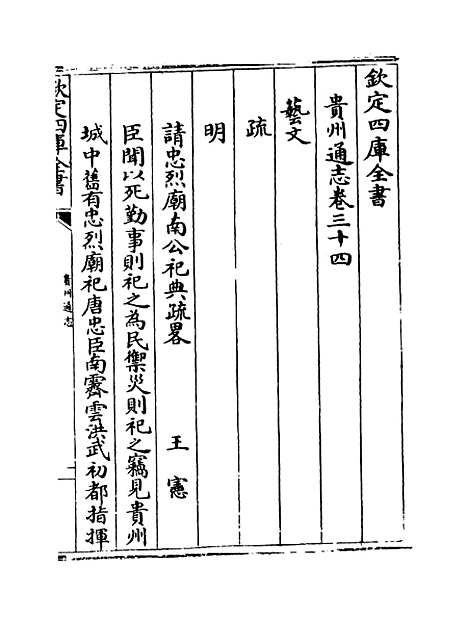 欽定四庫全書
貴州通志卷三十四
藝文
疏
明
請忠烈廟南公祀典疏畧 王憲
臣聞以死勤事則祀之為民禦災則祀之竊見貴州
城中舊有忠烈廟祀唐忠臣南霽雲洪武初都指揮
欽定四庫全書
貴州通志
一